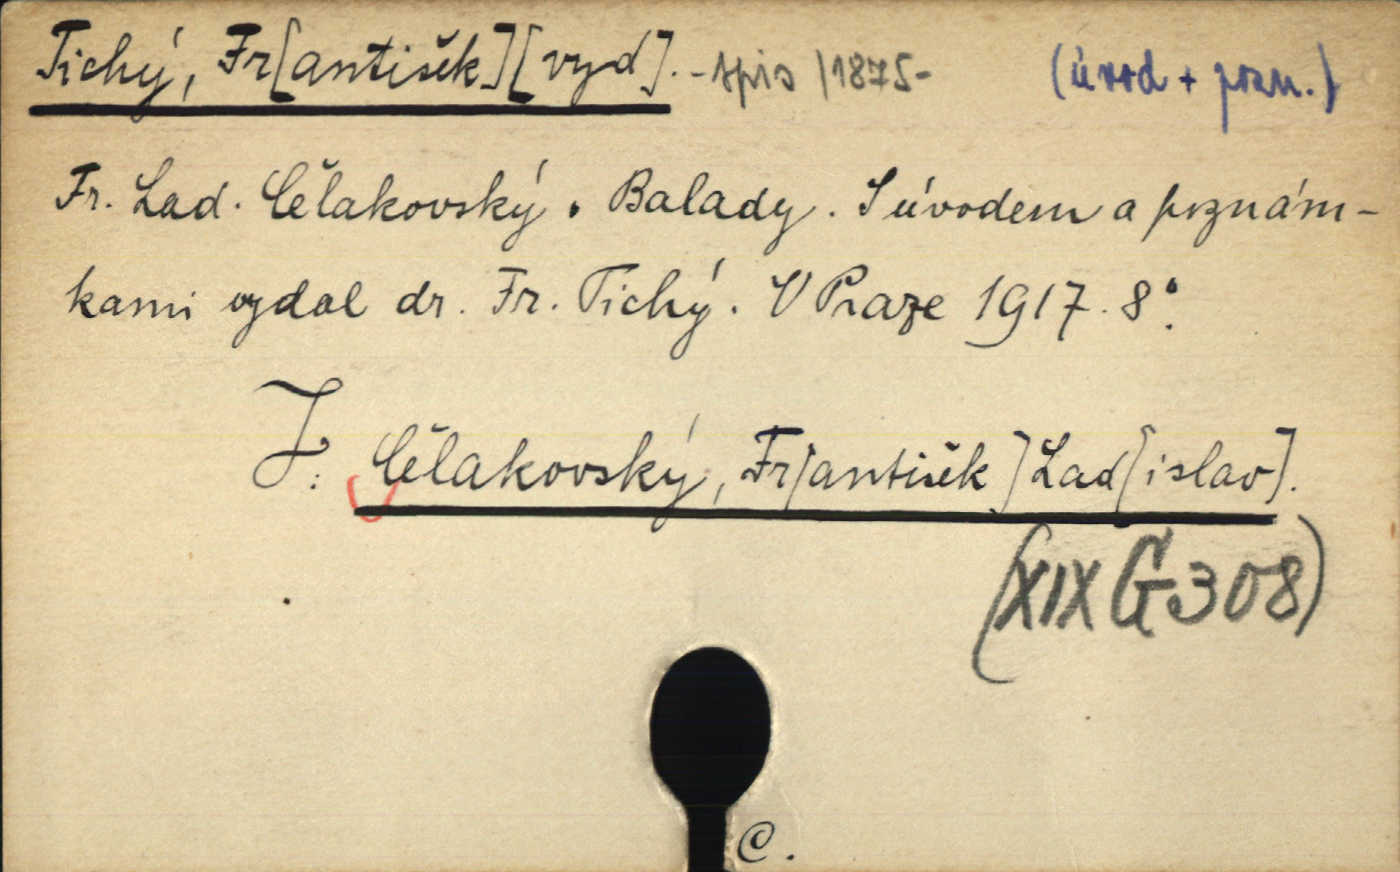 Tichý, Fr[antišek][vyd]. - spis /1875- (úvod + pozn.)
Fr. Lad. Čelakovský. Balady. S úvodem a poznám-
kami vydal dr. Fr. Tichý. V Praze 1917. 8°.
J: Čelakovský, Fr[antišek] Lad[islav].
(XIX G 308)
C.